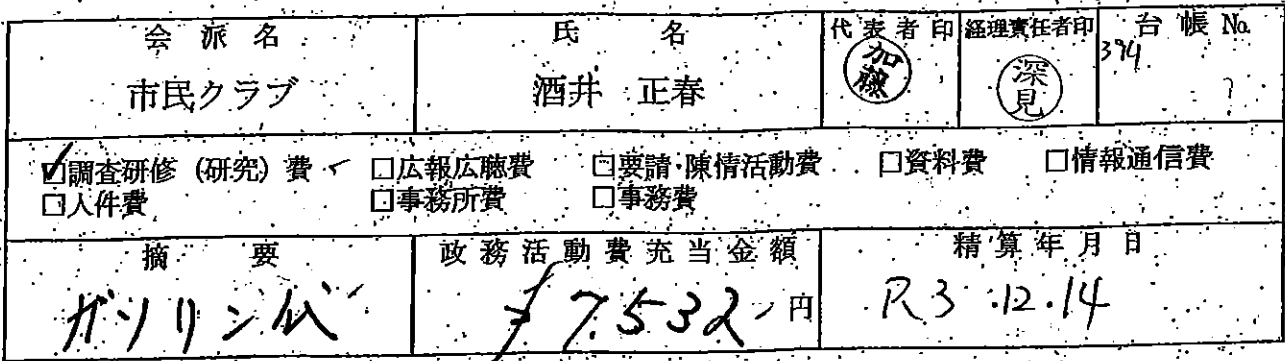 会派名 氏名 代表者印 経理責任者印 台帳No.
市民クラブ 酒井 正春 加藤 深見 394
☑調査研修(研究)費 □広報広聴費 □要請・陳情活動費 □資料費 □情報通信費
□人件費 □事務所費 □事務費
摘要 政務活動費充当金額 精算年月日
ガソリン代 ¥7,532円 R3.12.14